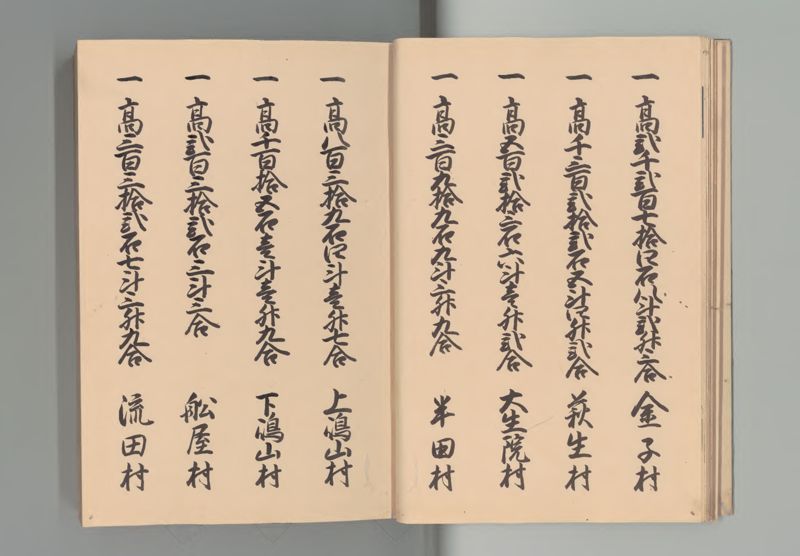 一 高弐千弐百七拾四石八斗弐升三合 金子村
一 高千三百弐拾弐石五斗四升弐合 萩生村
一 高五百弐拾三石六斗壱升弐合 大生院村
一 高三百九拾九石九斗三升九合 半田村
一 高八百三拾九石四斗壱升七合 上嶋山村
一 高千百拾五石壱斗壱升九合 下嶋山村
一 高弐百三拾弐石三斗三合 舩屋村
一 高三百三拾弐石七斗三升九合 流田村